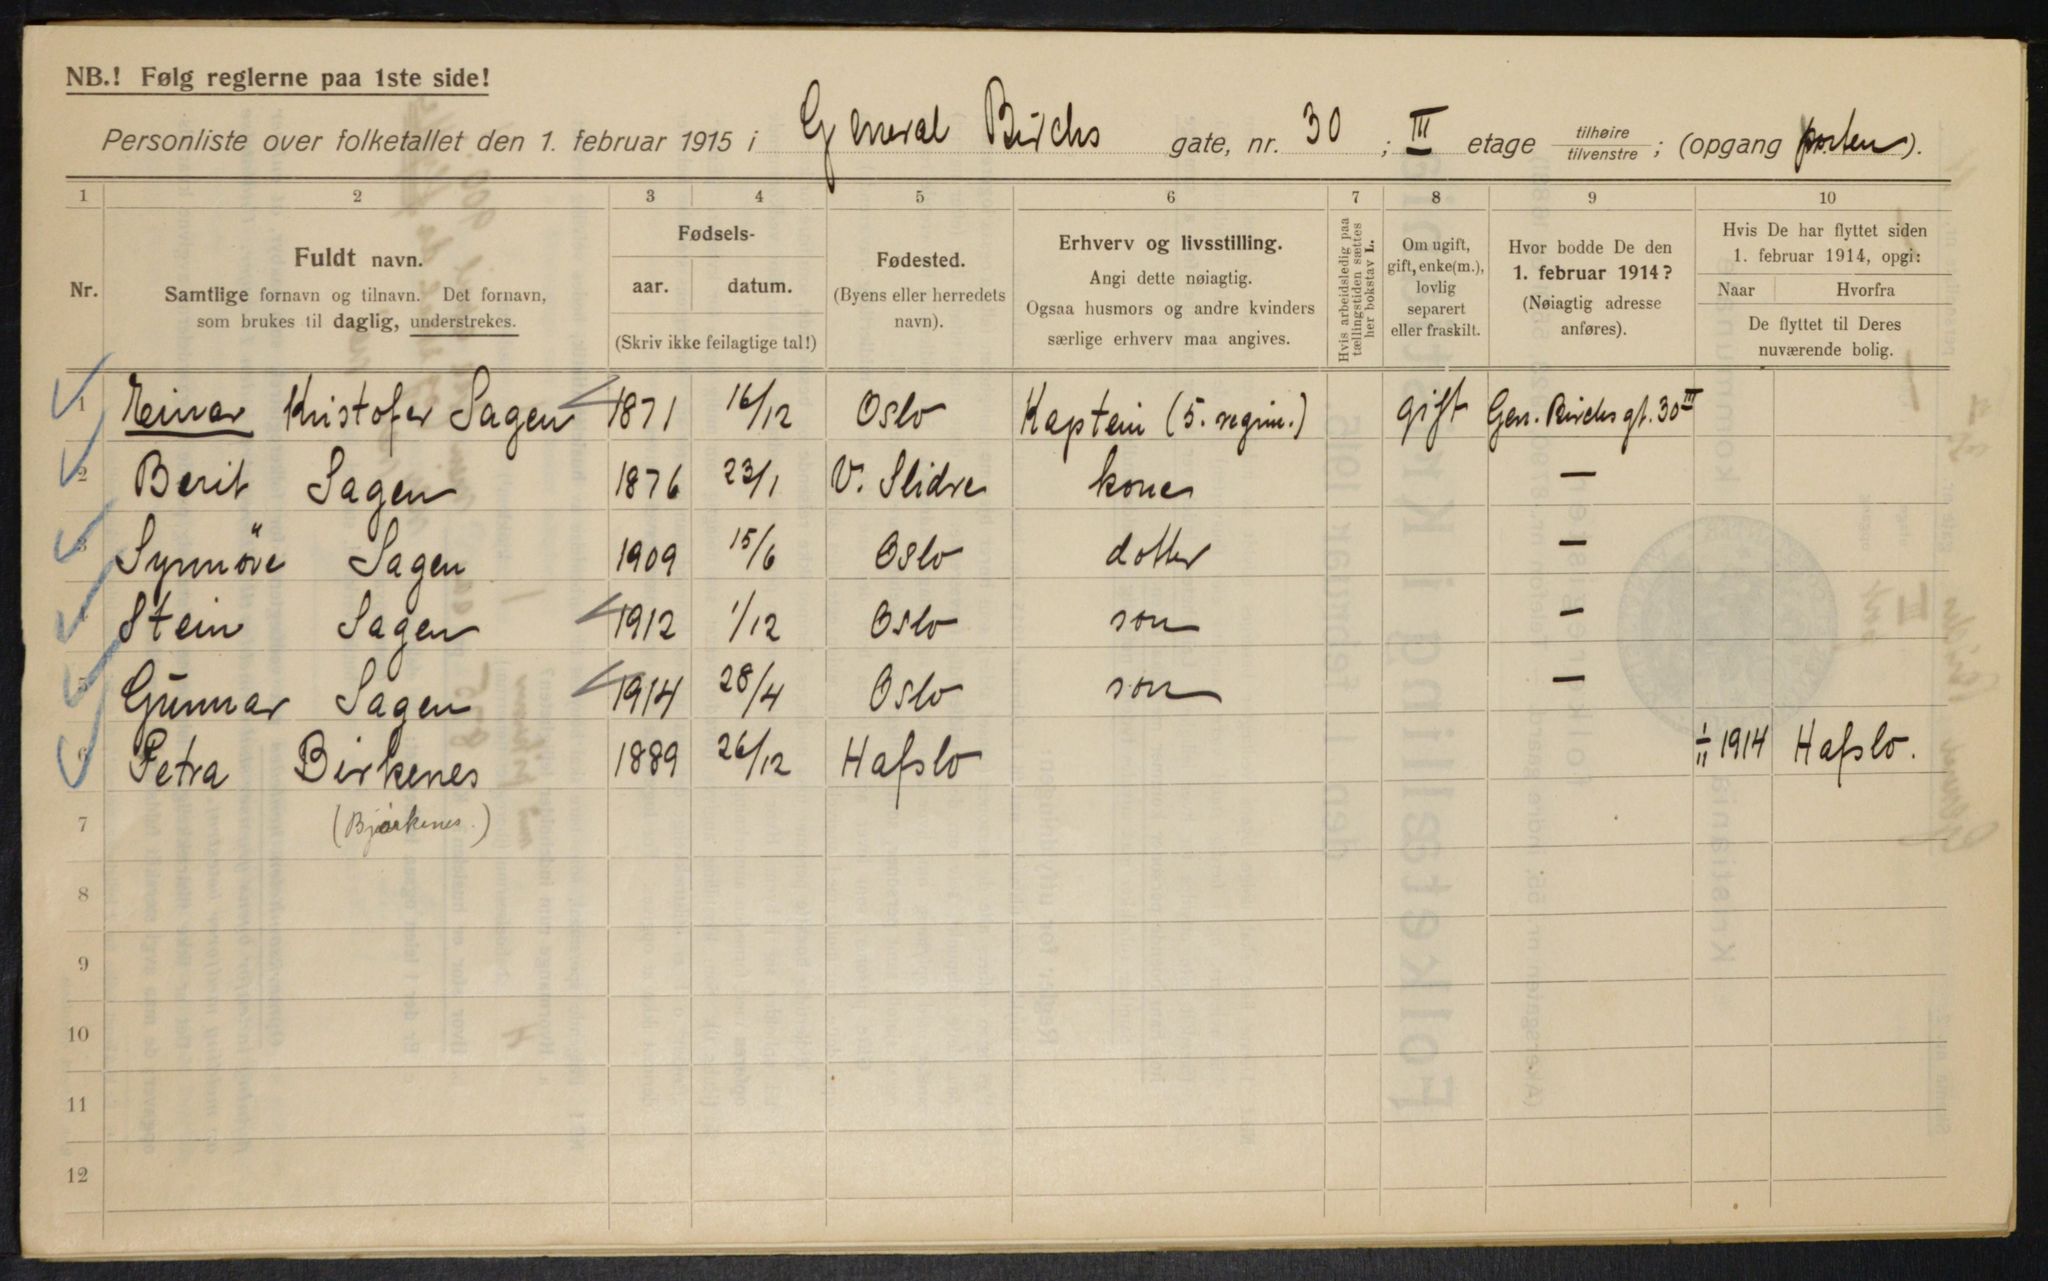 NB.! Følg reglerne paa 1ste side!
Personliste over folketallet den 1. februar 1915 i General Birchs gate, nr. 30 ; III etage tilhøire / tilvenstre ; (opgang porten).
1 2 3 4 5 6 7 8 9 10
Nr.
Fuldt navn.
Samtlige fornavn og tilnavn. Det fornavn, som brukes til daglig, understrekes.
Fødsels-
aar. datum.
(Skriv ikke feilagtige tal!)
Fødested.
(Byens eller herredets navn).
Erhverv og livsstilling.
Angi dette nøiagtig.
Ogsaa husmors og andre kvinders særlige erhverv maa angives.
Hvis arbeidsledig paa tællingstiden sættes her bokstav L.
Om ugift, gift, enke(m.), lovlig separert eller fraskilt.
Hvor bodde De den 1. februar 1914?
(Nøiagtig adresse anføres).
Hvis De har flyttet siden 1. februar 1914, opgi:
Naar Hvorfra
De flyttet til Deres nuværende bolig.
1 Einar Kristofer Sagen 1871 16/12 Oslo Kaptein (5. regim.) gift Gen. Birchs gt. 30 III
2 Berit Sagen 1876 23/1 V. Slidre kone —
3 Synnöve Sagen 1909 15/6 Oslo dotter —
4 Stein Sagen 1912 1/12 Oslo son —
5 Gunnar Sagen 1914 28/4 Oslo son —
6 Petra Birkenes 1889 26/12 Hafslo 1/11 1914 Hafslo.
7 (Bjørkenes.)
8
9
10
11
12